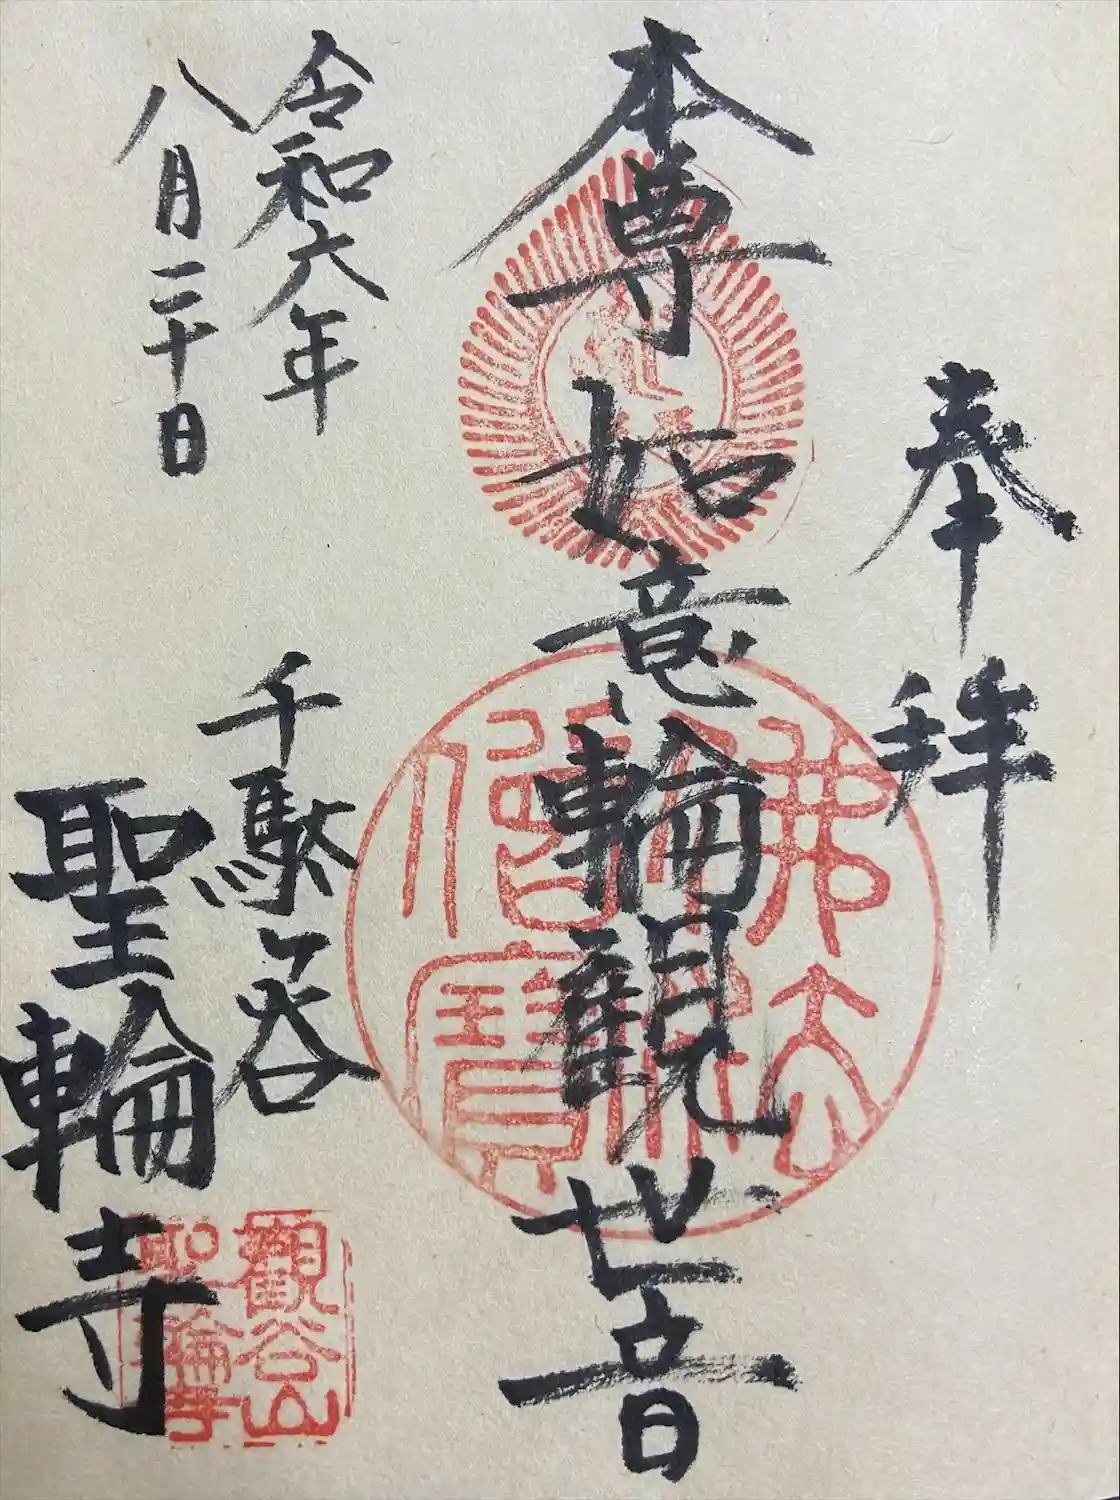 奉拝
本尊如意輪観世音
令和六年
八月二十日
千駄谷
聖輪寺
佛法僧寶
觀谷山
聖輪寺